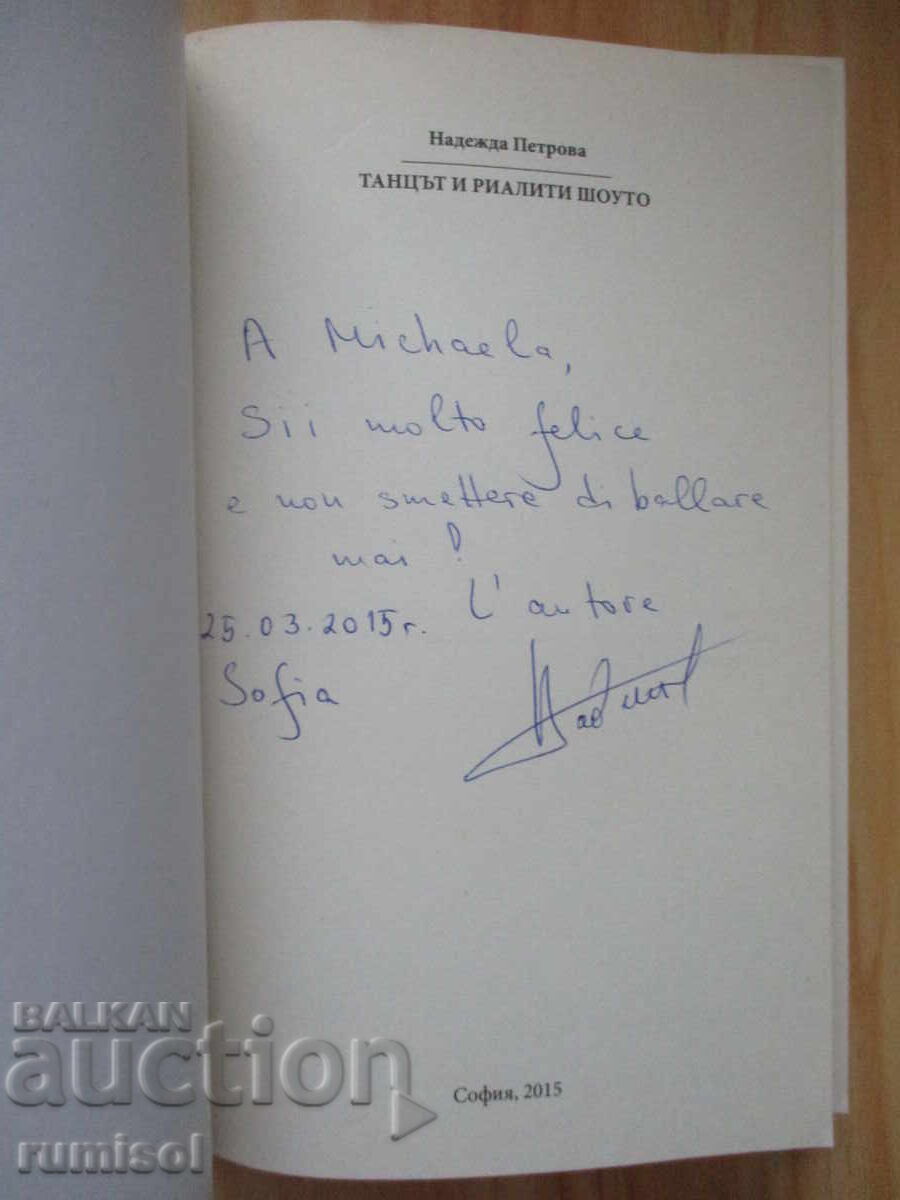 Надежда Петрова
ТАНЦЪТ И РИАЛИТИ ШОУТО
A Michaela,
Sii molto felice
e non smettere di ballare
mai!
L'autore
25.03.2015г.
Sofia
София, 2015
BALKAN
auction
rumisol